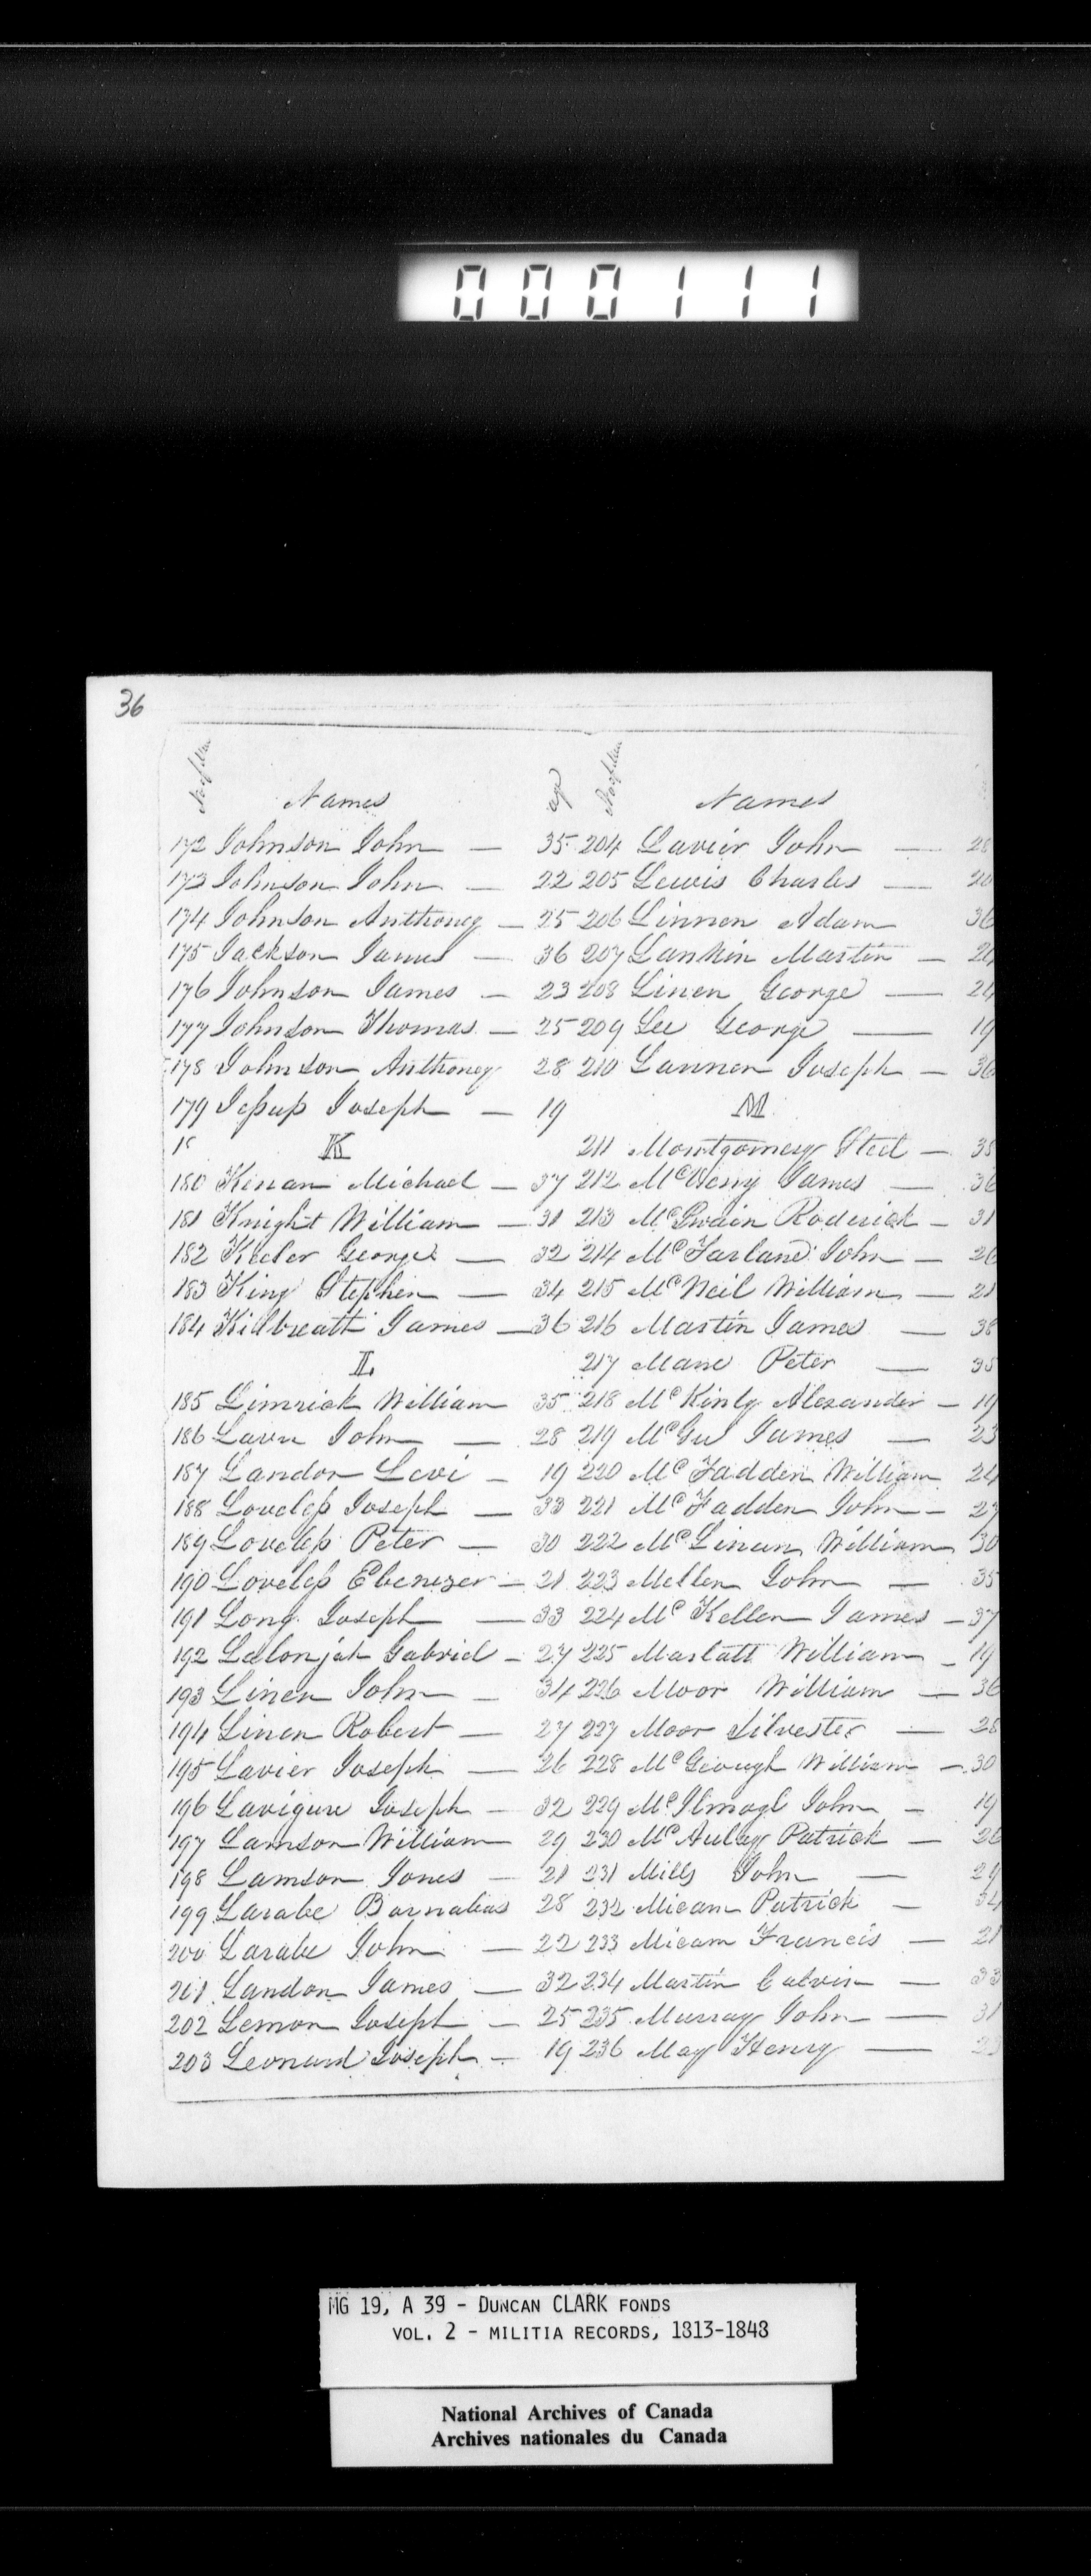 000111
36
No of Men Names age No of Men Names
172 Johnson John — 35 204 Lavier John — 28
173 Johnson John — 22 205 Lewis Charles — 20
174 Johnson Anthoney — 25 206 Linnen Adam 36
175 Jackson James — 36 207 Lankin Martin — 24
176 Johnson James — 23 208 Linen George — 24
177 Johnson Thomas — 25 209 Lee George — 19
178 Johnson Anthoney 28 210 Lannen Joseph — 36
179 Jessup Joseph — 19 M
K 211 Montgomery Steel — 35
180 Kenan Michael — 37 212 McVeny James — 36
181 Knight William — 31 213 McSwain Roderick — 31
182 Keeler George — 32 214 McFarland John — 26
183 King Stephen — 34 215 McNeil William — 21
184 Kilbreatt James — 36 216 Martin James — 38
L 217 Mane Peter — 35
185 Limrick William 35 218 McKinly Alexander — 19
186 Lavere John — 28 219 McGee James — 23
187 Landon Levi — 19 220 McFadden William 24
188 Loveless Joseph — 33 221 McFadden John — 27
189 Loveless Peter — 30 222 McLinen William 30
190 Loveless Ebenezer — 21 223 Mellen John — 35
191 Long Joseph — 33 224 McKellen James — 37
192 Lalonjah Gabriel — 27 225 Marlatt William — 19
193 Linen John — 34 226 Moor William — 36
194 Linen Robert — 27 227 Moor Silvester — 28
195 Lavier Joseph — 26 228 McGeough William — 30
196 Lavigure Joseph — 32 229 McIlmogl John — 19
197 Lamson William 29 230 McAulay Patrick — 26
198 Lamson Jones — 21 231 Mills John — 29
199 Larabe Barnabas 28 232 Micam Patrick — 34
200 Larabe John — 22 233 Micam Francis — 21
201 Landon James — 32 234 Martin Calvin — 33
202 Lemon Joseph — 25 235 Murray John — 31
203 Leonard Joseph — 19 236 May Henry — 23
MG 19, A 39 - DUNCAN CLARK FONDS
VOL. 2 - MILITIA RECORDS, 1813-1848
National Archives of Canada
Archives nationales du Canada